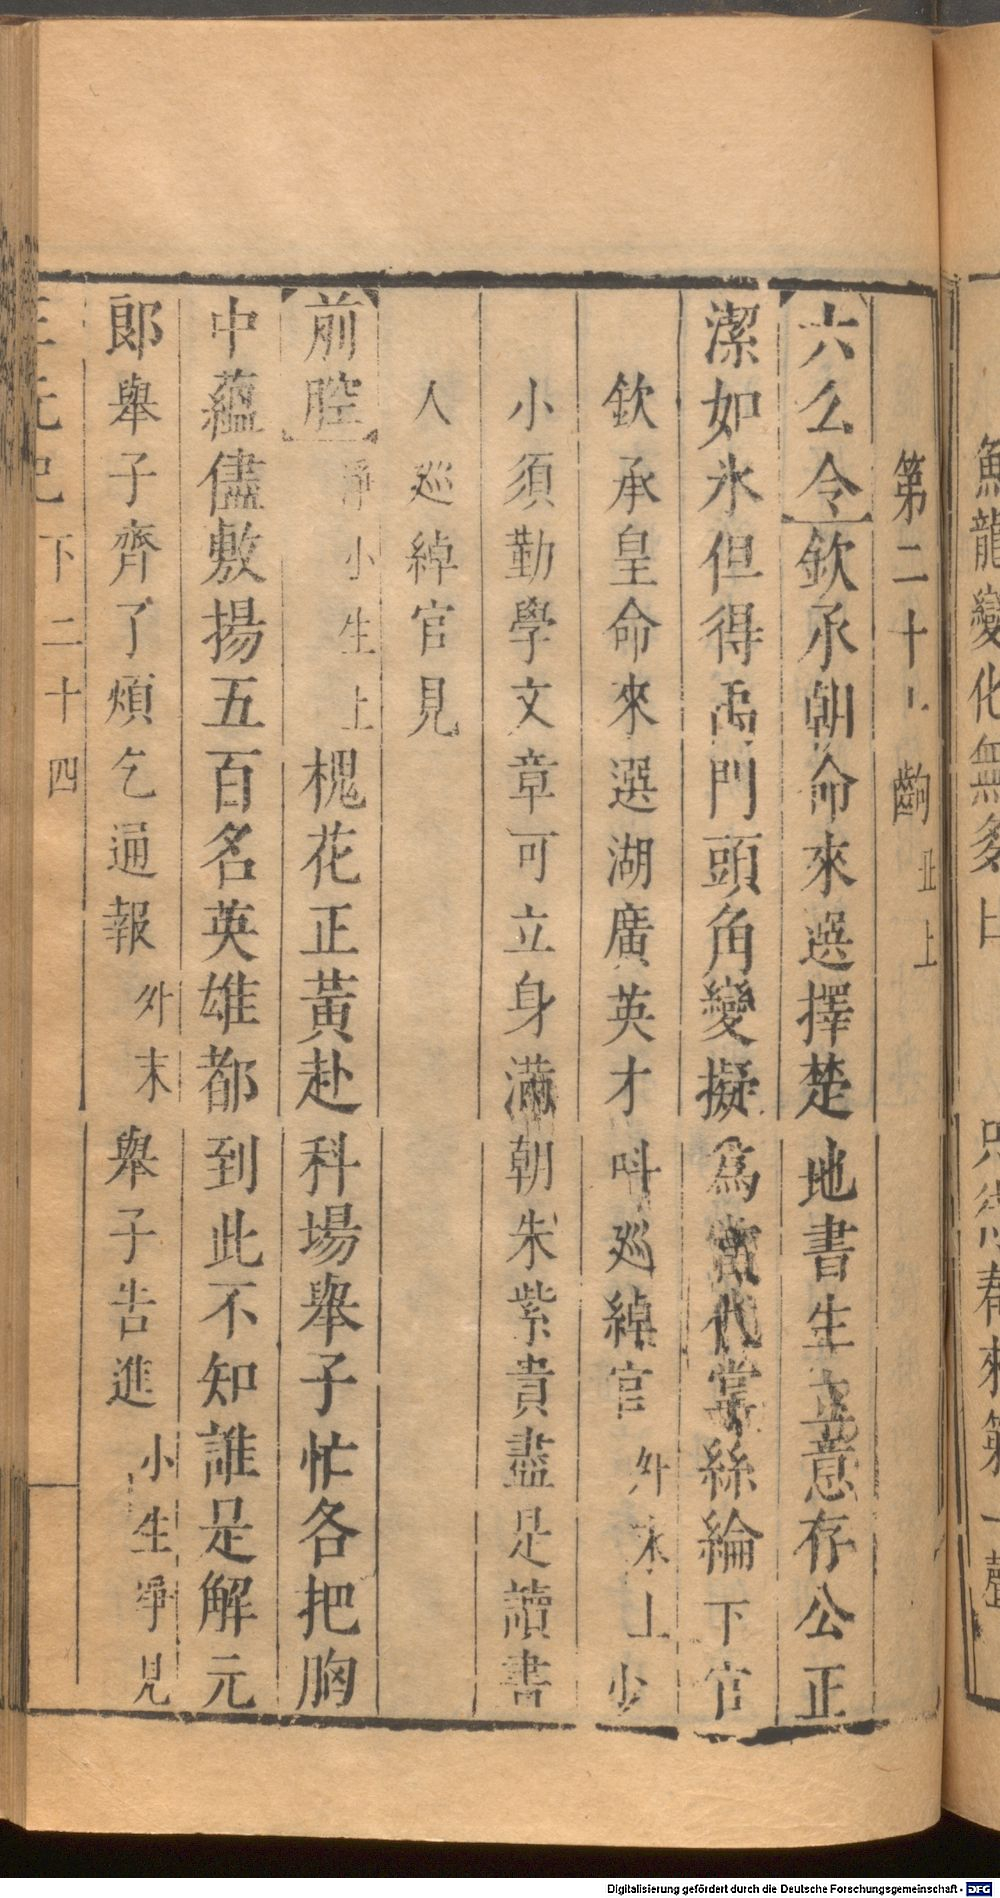 第二十齣丑上
【六么令】欽承朝命來選擇楚地書生立意存公正
潔如氷但得禹門頭角變擬爲當代掌絲綸下官
欽承皇命來選湖廣英才叫廵綽官外末上少
小須勤學文章可立身滿朝朱紫貴盡是讀書
人廵綽官見
【前腔】淨小生上槐花正黃赴科場舉子忙各把胸
中蘊儘敷揚五百名英雄都到此不知誰是解元
郎舉子齊了煩乞通報外末舉子告進小生淨見
三元記下二十四
龍變化無
Digitalisierung gefördert durch die Deutsche Forschungsgemeinschaft - DFG